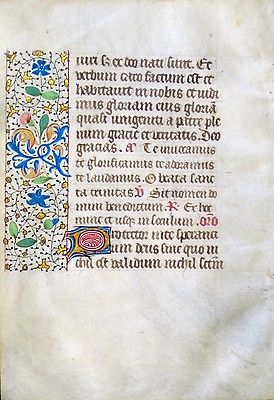 uiri sz ex deo nati sunt. Et
verbum caro factum est et
habitauit in nobis et uidi
mus gloriam eius gloriā
quasi unigeniti a patre ple
num gracie et veritatis. Deo
gracias. A Te inuocamus
te glorificamus te adoramus
te laudamus. O beata sanc
ta trinitas V Sit nomen do
mini benedictum. R Et hoc
nunc et usqꝫ in seculum. oro
Protector in te speranci
um deus sine quo ni
chil est validum nichil sctm̄